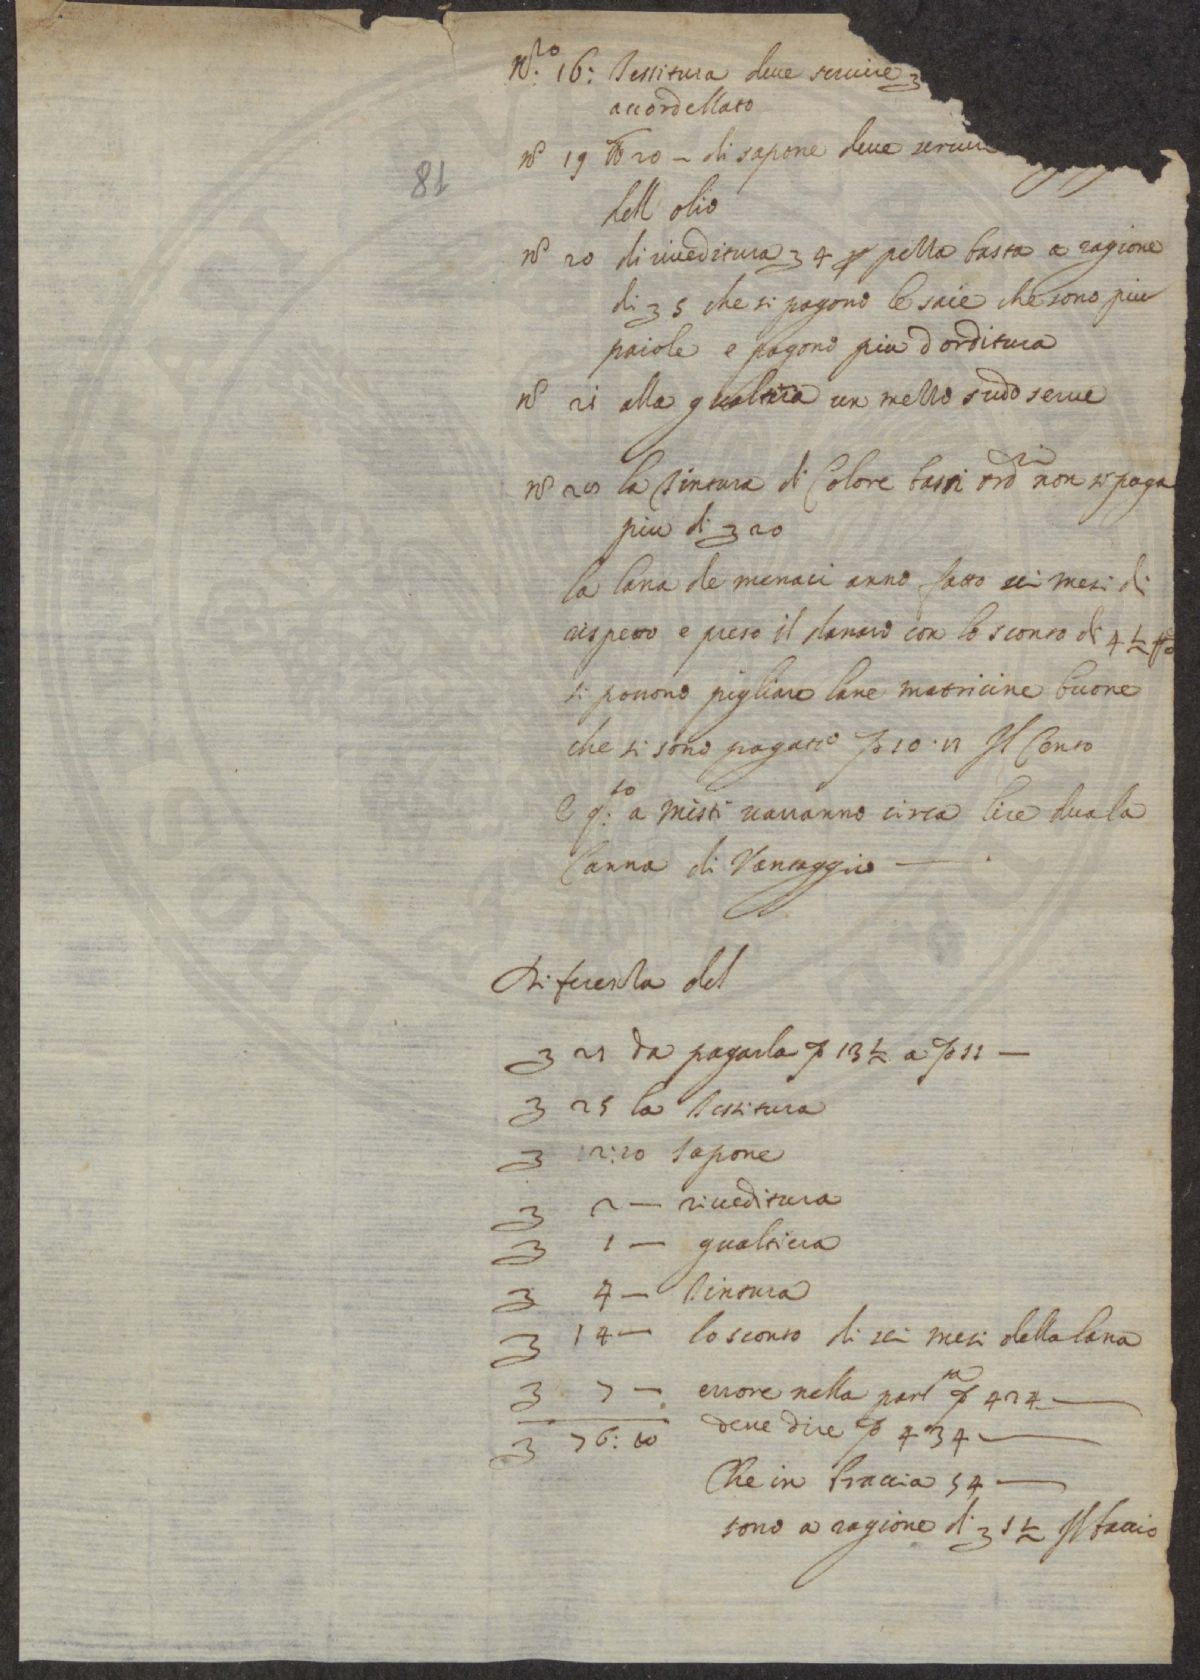 N.ro 16: Tessitura deve servire
accordellato
81
N.o 19 lb 20 — di sapone deve
dell olio
N.o 20 di riveditura 4 pella basta a ragione
di 5 che si pagono le saie che sono piu
paiole e pagono piu d'orditura
N.o 21 alla gualtiera un mezzo scudo serve
N.o la tintura di Colore bassi ord.ri non si paga
piu di 20
la lana de monaci anno fatto sei mesi di
rispetto e preso il danaro con lo sconto di 4
si possono pigliare lane matricine buone
che si sono pagate Il Cento
E q.to a misti varranno circa lire dua la
Canna di Vantaggio —
Diferenza del
da pagarla 13 a 11 —
25 la Tessitura
12:10 sapone
2 — riveditura
1 — gualtiera
4 — tintura
14 — lo sconto di sei mesi della lana
7 — errore nella part.ta 424 —
76:10 deve dire 434 —
Che in braccia 54 —
sono a ragione di Il braccio